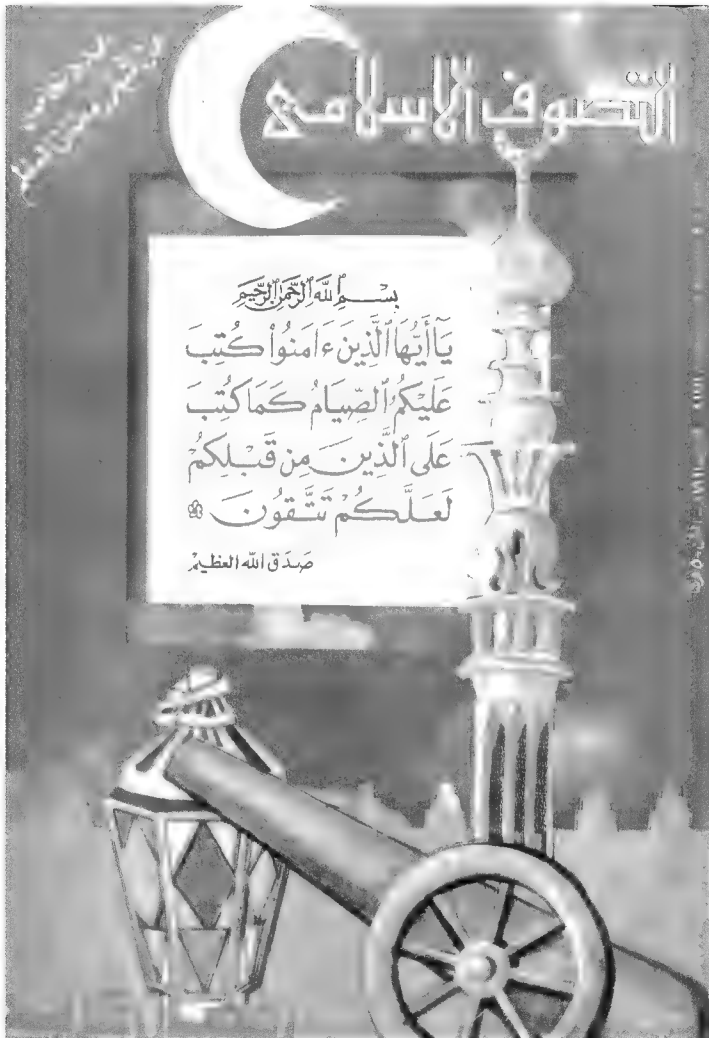 التصوف الاسلامى
بِسْمِ ٱللَّهِ ٱلرَّحْمَٰنِ ٱلرَّحِيمِ
يَٰٓأَيُّهَا ٱلَّذِينَ ءَامَنُوا۟ كُتِبَ
عَلَيْكُمُ ٱلصِّيَامُ كَمَا كُتِبَ
عَلَى ٱلَّذِينَ مِن قَبْلِكُمْ
لَعَلَّكُمْ تَتَّقُونَ
صَدَقَ الله العظيم